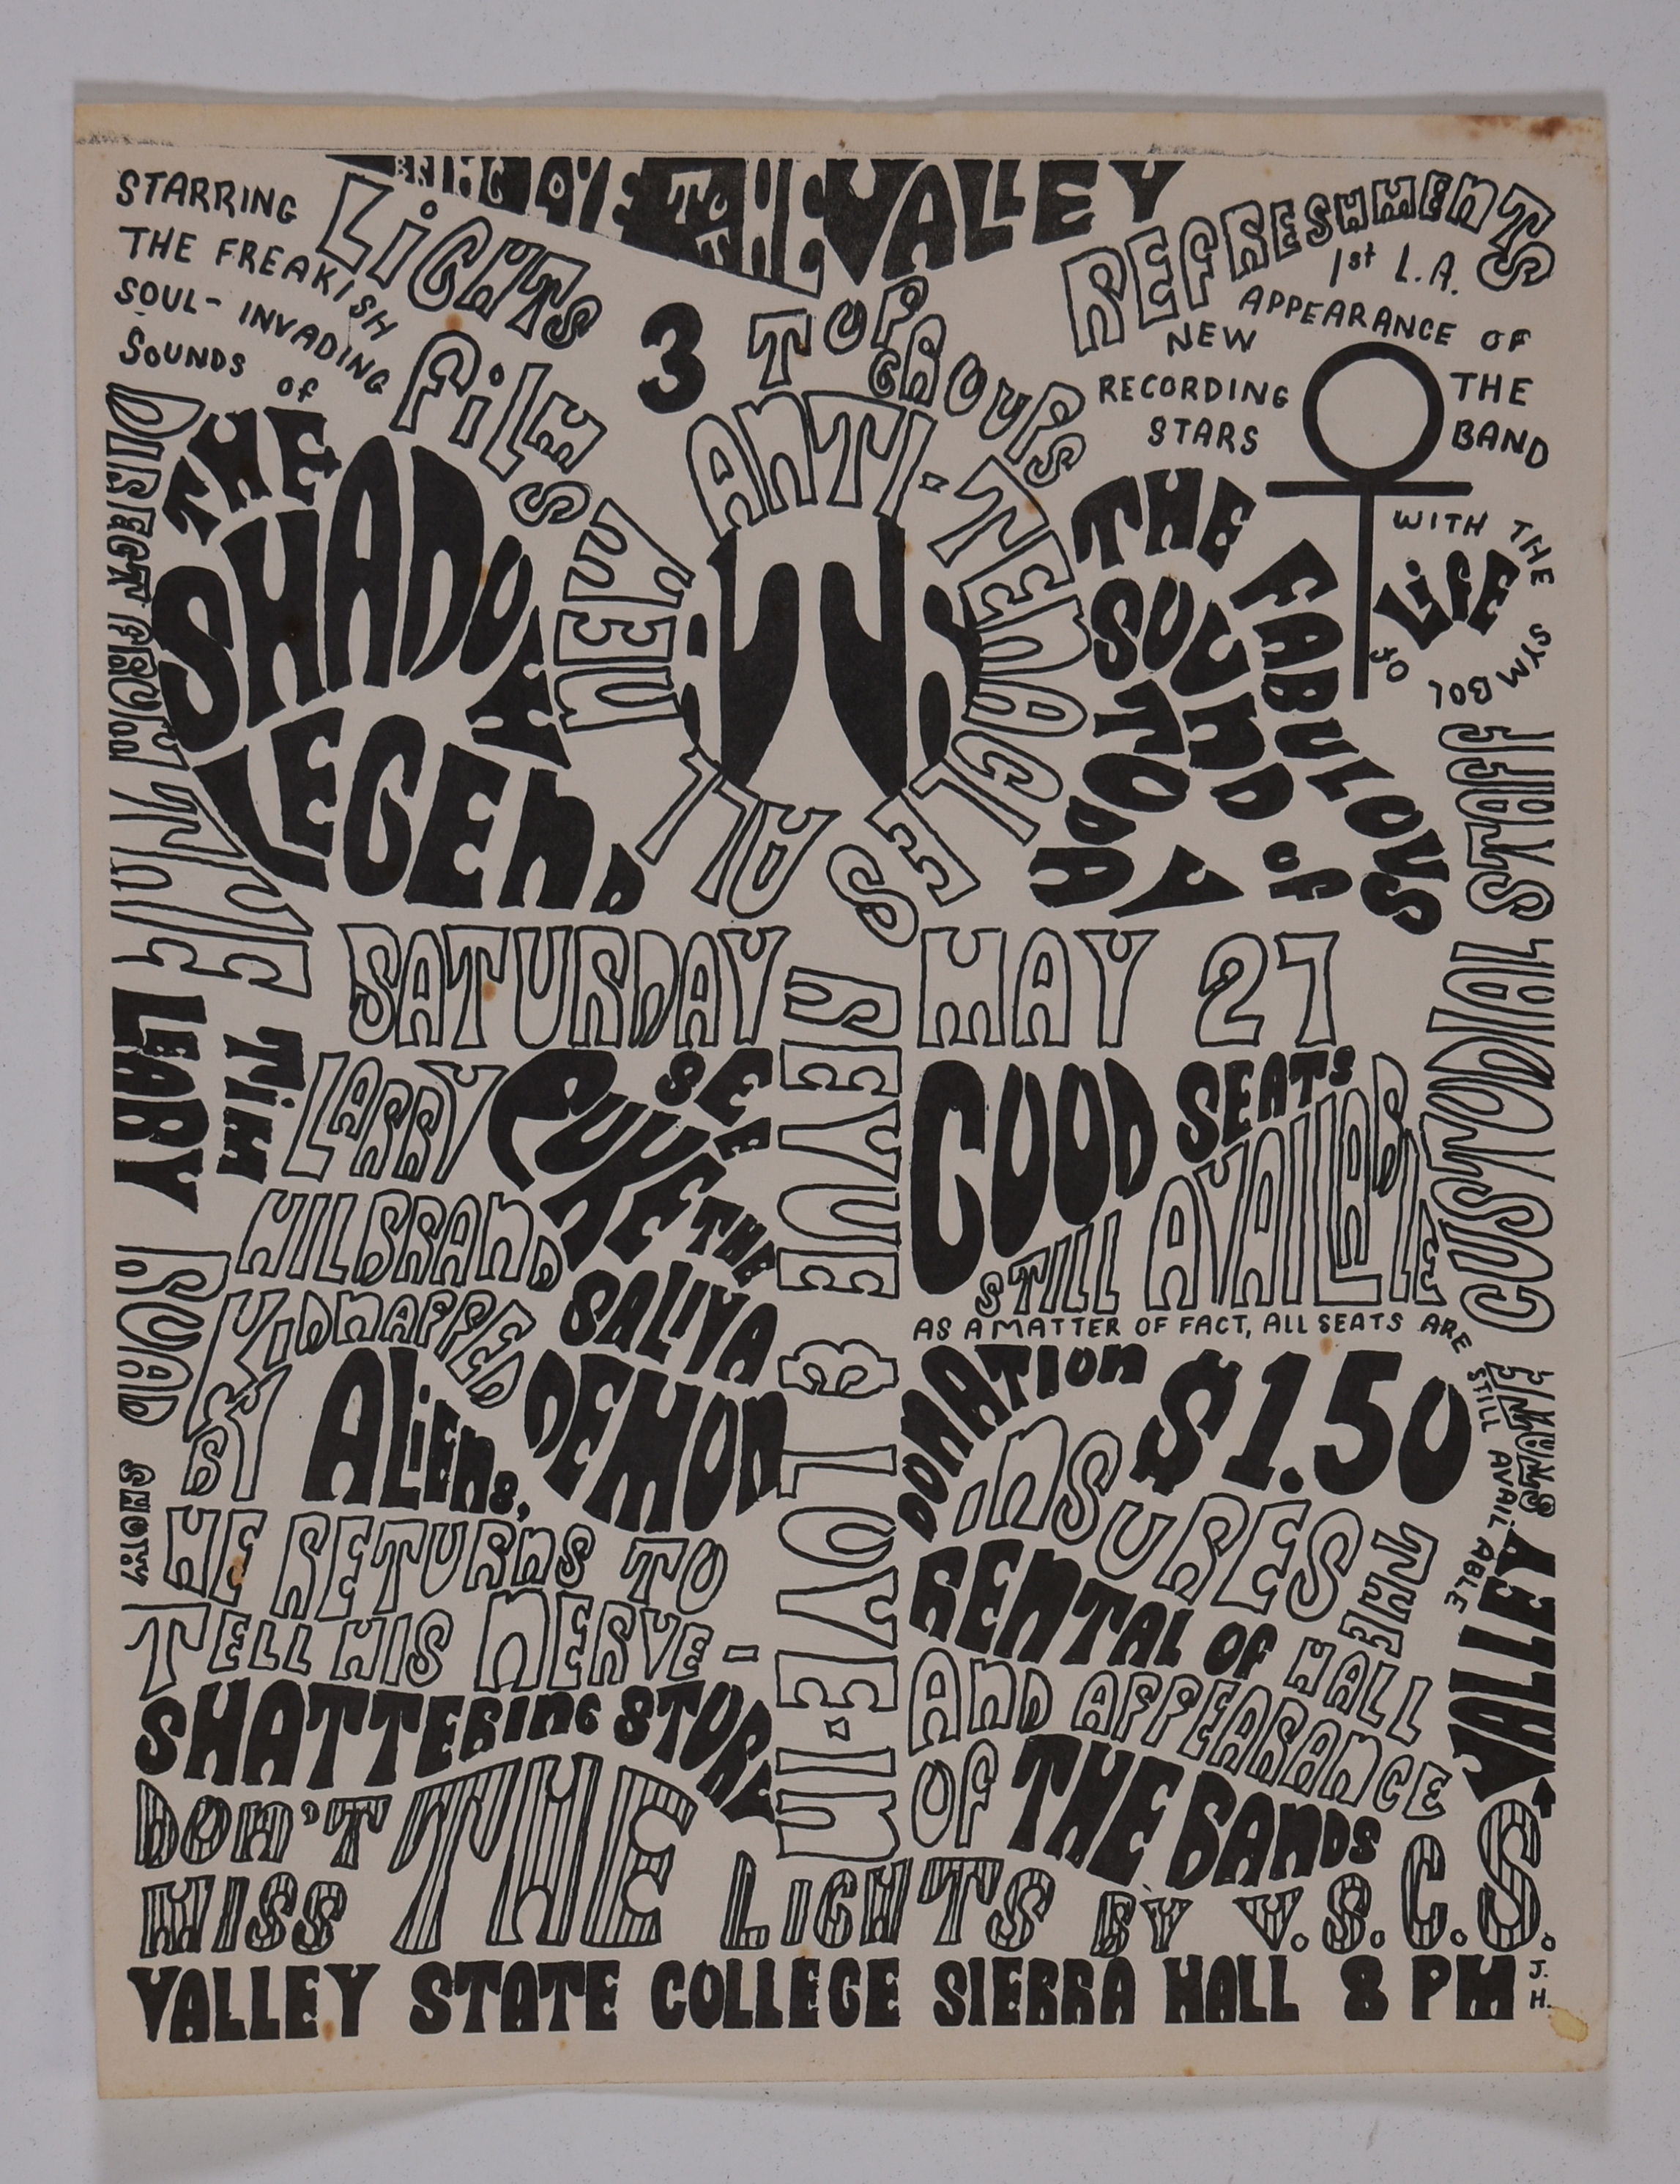 BRING LOVE TO THE VALLEY
STARRING
THE FREAKISH
SOUL- INVADING
SOUNDS of
THE
SHADOW
LEGEND
LIGHTS
FILMS
3 TOP
GROUPS
REFRESHMENTS
1st L.A.
APPEARANCE OF
NEW
RECORDING
STARS
THE
BAND
WITH THE SYMBOL OF
LIFE
THE FABULOUS
SOUND of
TODAY
ALL NEW
ANTI-TENACLES
DIRECT FROM
THE
TIM
LEARY
ROAD SHOW
SATURDAY MAY 27
REVUE & LOVE-IN
LARRY
HILBRAND
KIDNAPPED
BY ALIENS,
HE RETURNS TO
TELL HIS NERVE-
SHATTERING STORY
SEE
PUKE
THE
SALIVA
DEMON
GOOD SEATS
STILL AVAILABLE
AS A MATTER OF FACT, ALL SEATS ARE
STILL AVAILABLE
DONATION $1.50
INSURES THE
RENTAL OF HALL
AND APPEARANCE
OF THE BANDS
JEFF HAYES
CUSTODIAL
VALLEY
DON'T
MISS THE LIGHTS BY V.S.C.S.
VALLEY STATE COLLEGE SIERRA HALL 8 PM
J.
H.